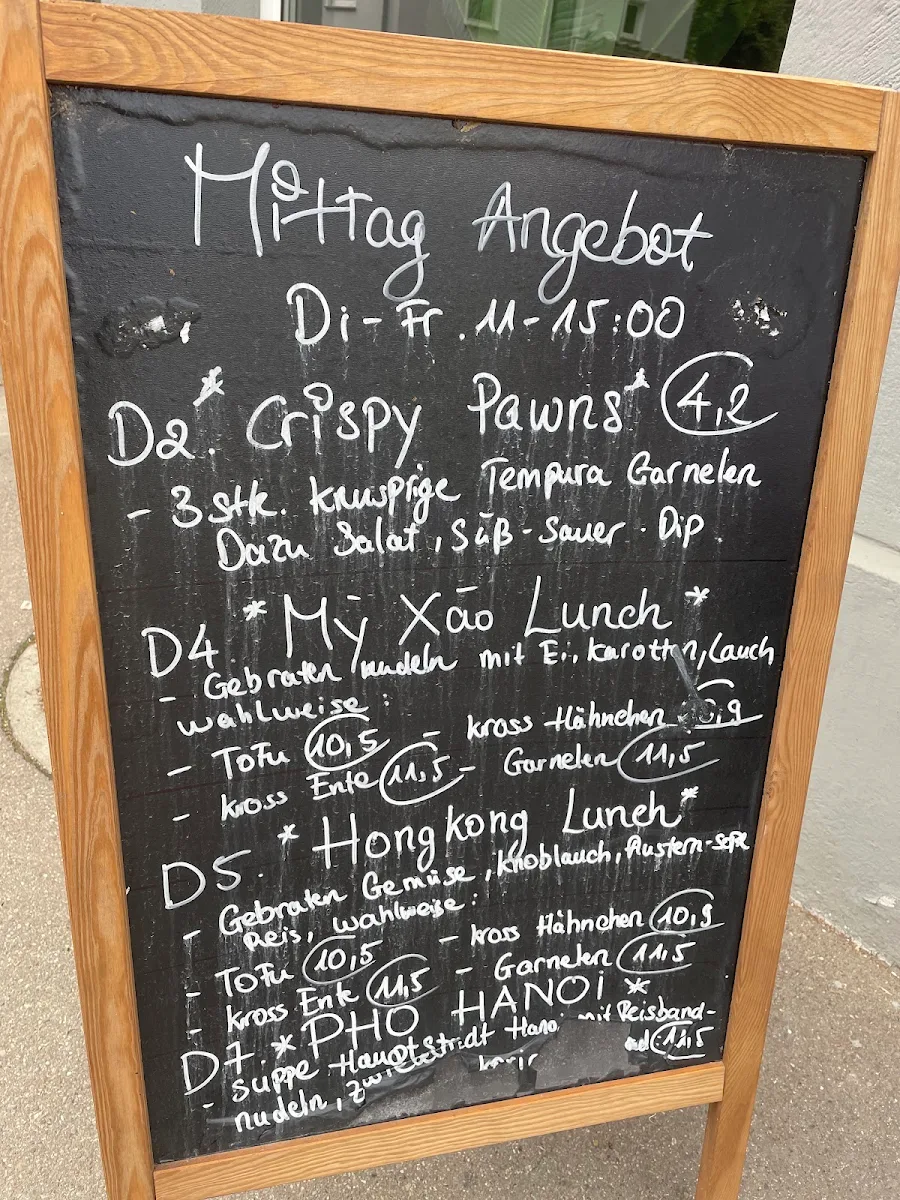 Mittag Angebot
Di - Fr . 11 - 15:00
D2. *Crispy Pawns* 4,2
- 3 Stk. knusprige Tempura Garnelen
Dazu Salat, Süß-Sauer-Dip
D4. *Mỳ Xāo Lunch*
- Gebraten nudeln mit Ei, Karotten, Lauch
wahlweise:
- Tofu 10,5 - kross Hähnchen ,9
- kross Ente 11,5 - Garnelen 11,5
D5. *Hongkong Lunch*
- Gebraten Gemüse, Knoblauch, Austern-Soße
Reis, wahlweise:
- Tofu 10,5 - kross Hähnchen 10,9
- kross Ente 11,5 - Garnelen 11,5
D7. *PHO HANOI*
- Suppe Hauptstadt Hanoi mit Reisband-
nudeln, 11,5